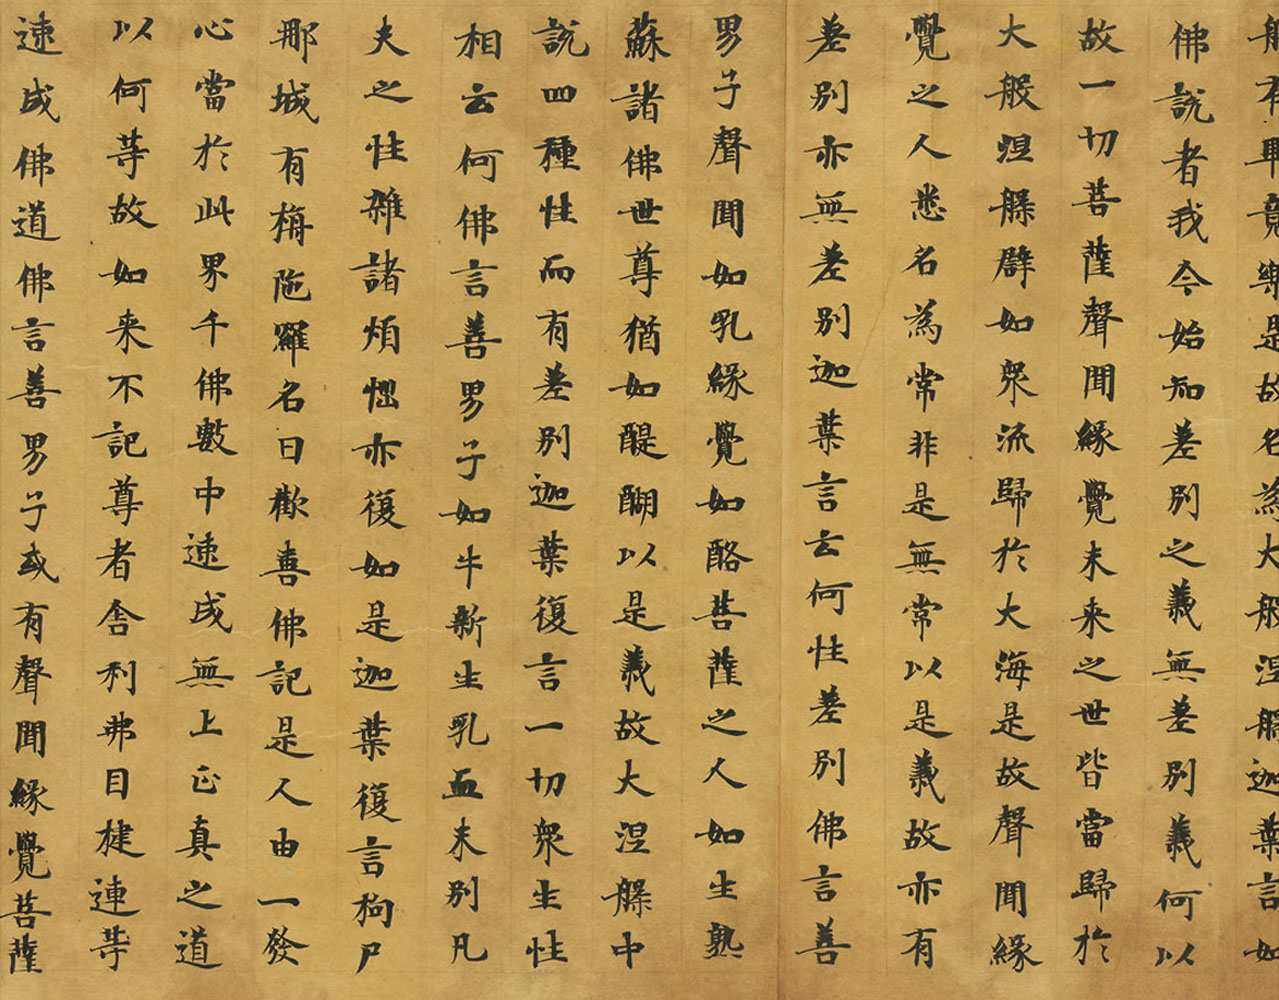 畢竟樂是故名為大般涅槃迦葉言如
佛說者我今始知差別之義無差別義何以
故一切菩薩聲聞緣覺未來之世皆當歸於
大般涅槃譬如眾流歸於大海是故聲聞緣
覺之人悉名為常非是無常以是義故亦有
差別亦無差別迦葉言云何性差別佛言善
男子聲聞如乳緣覺如酪菩薩之人如生熟
蘇諸佛世尊猶如醍醐以是義故大涅槃中
說四種性而有差別迦葉復言一切眾生性
相云何佛言善男子如牛新生乳血未別凡
夫之性雜諸煩惱亦復如是迦葉復言拘尸
那城有旃陀羅名曰歡喜佛記是人由一發
心當於此界千佛數中速成無上正真之道
以何等故如來不記尊者舍利弗目揵連等
速成佛道佛言善男子或有聲聞緣覺菩薩